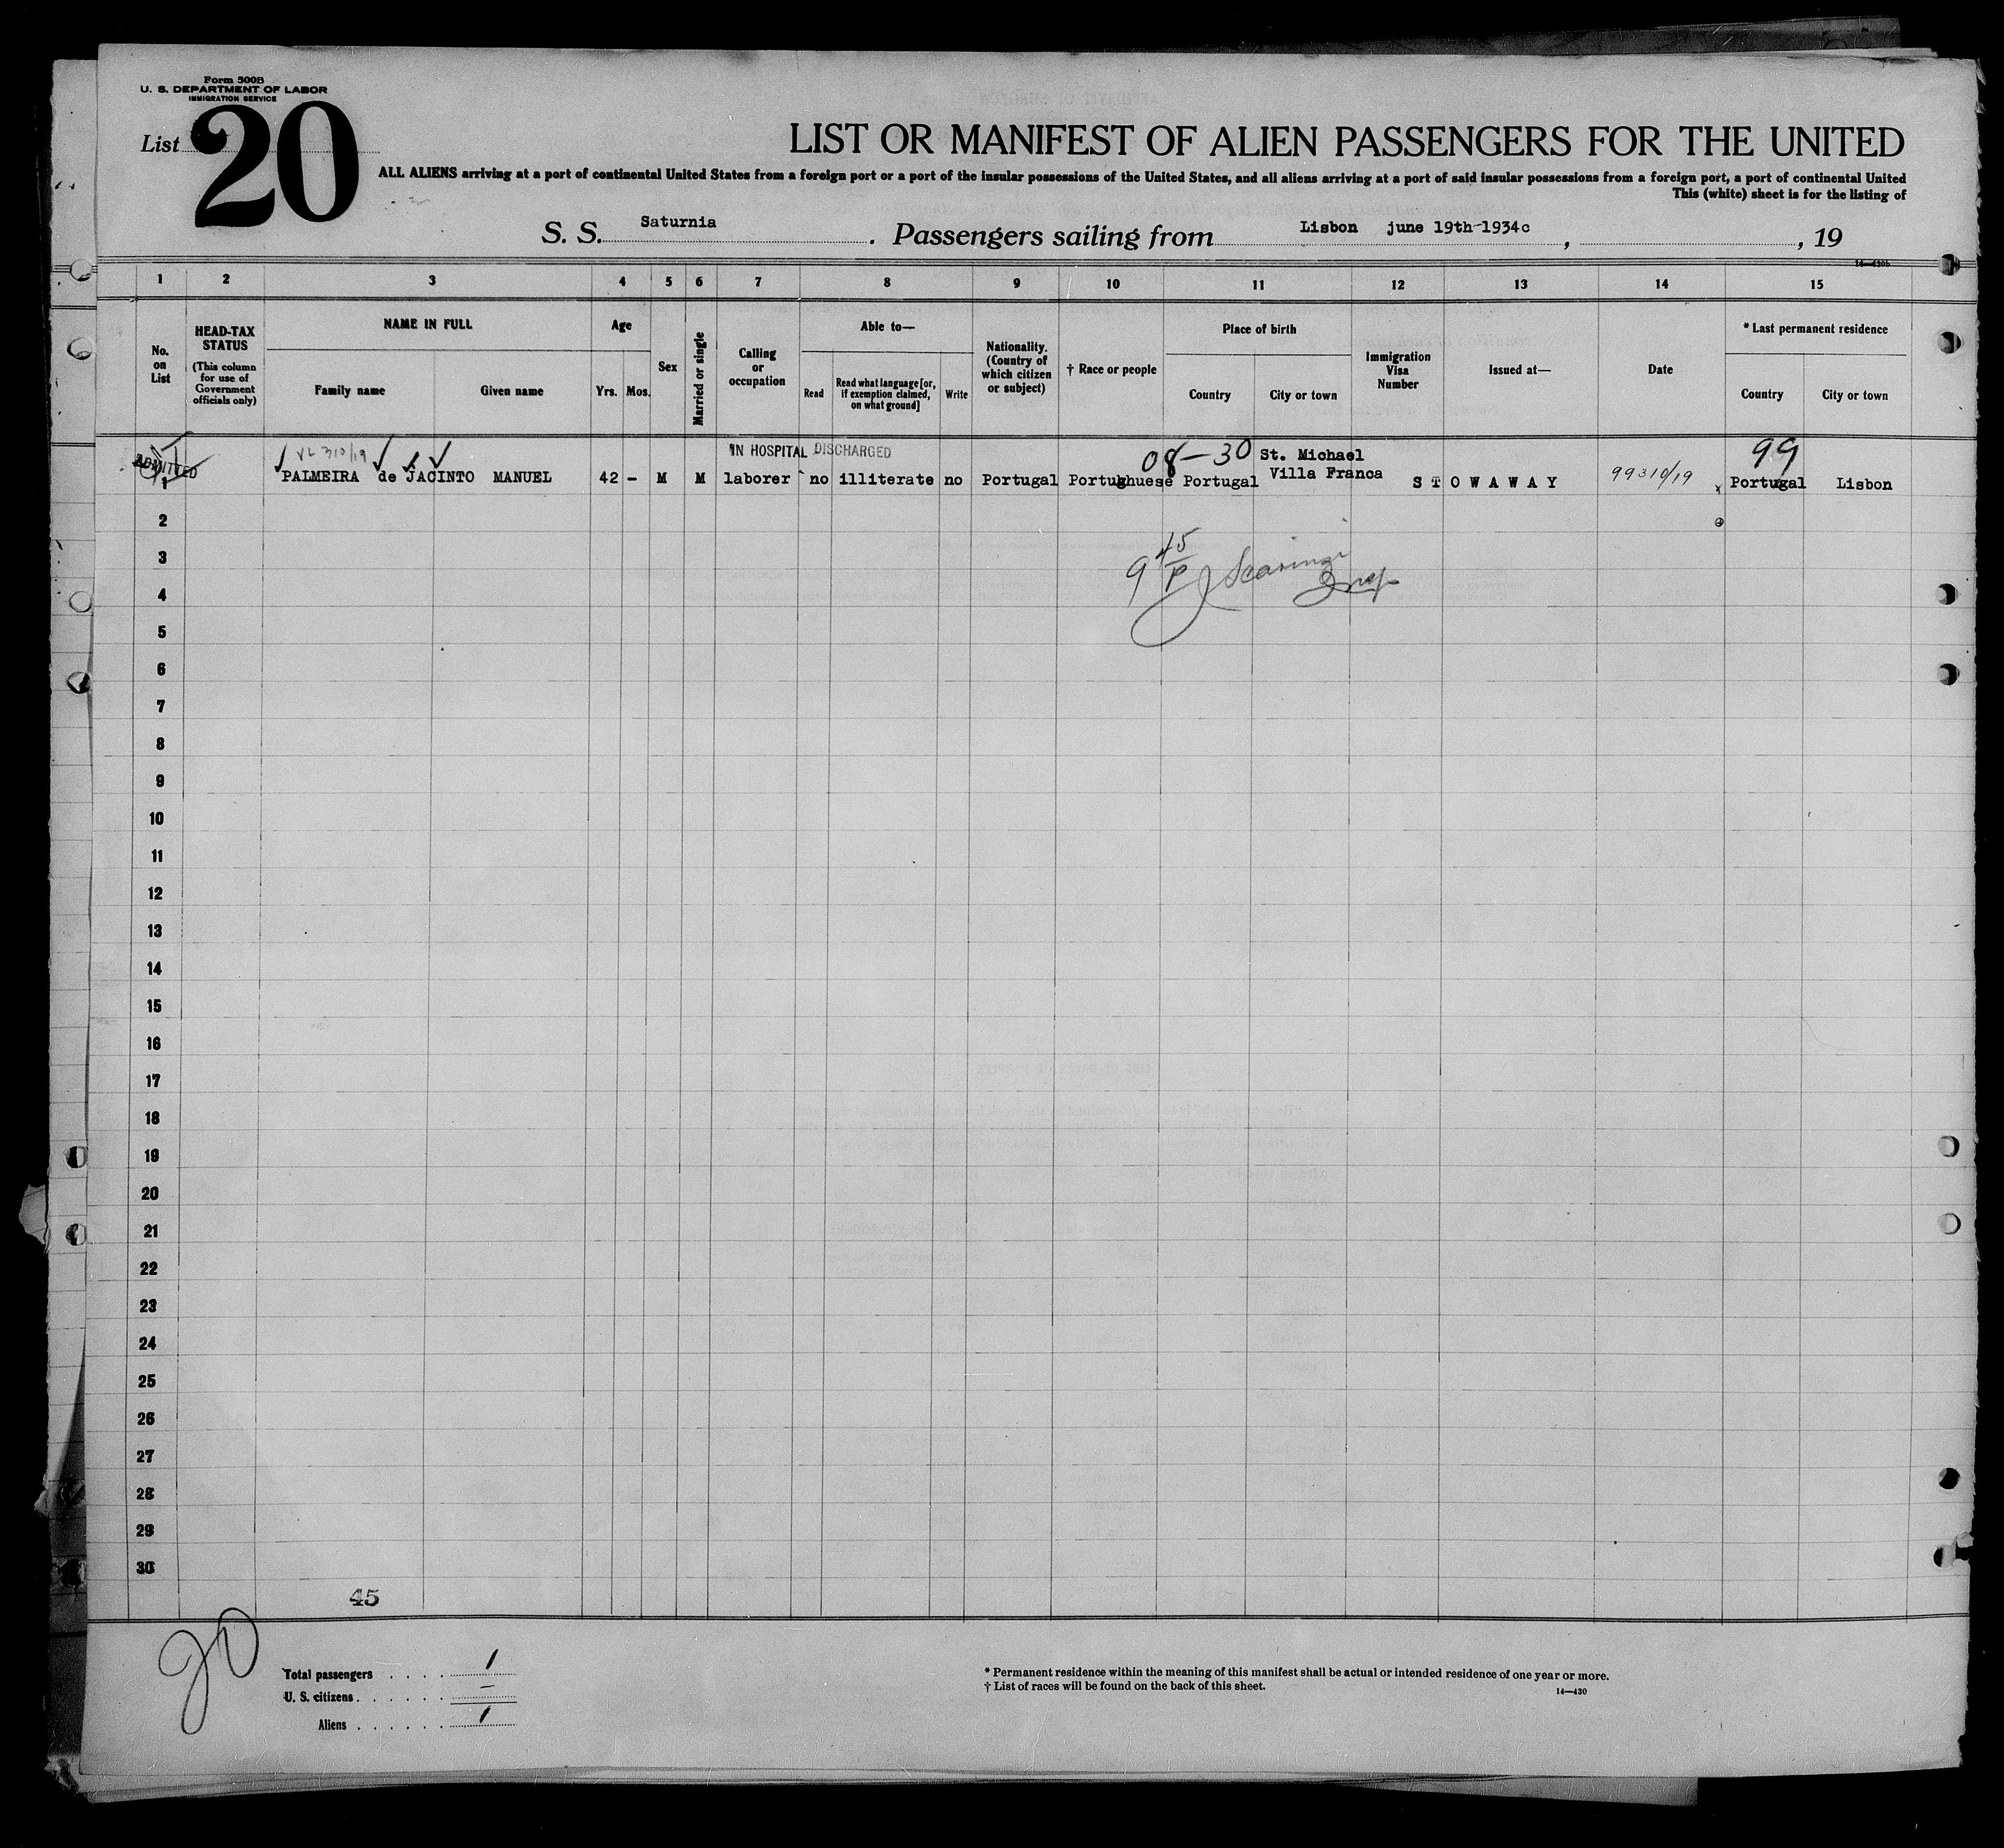 Form 500B
U. S. DEPARTMENT OF LABOR
IMMIGRATION SERVICE
List 20
LIST OR MANIFEST OF ALIEN PASSENGERS FOR THE UNITED
ALL ALIENS arriving at a port of continental United States from a foreign port or a port of the insular possessions of the United States, and all aliens arriving at a port of said insular possessions from a foreign port, a port of continental United
This (white) sheet is for the listing of
S. S. Saturnia . Passengers sailing from Lisbon june 19th-1934c , , 19
14—430b
1 2 3 4 5 6 7 8 9 10 11 12 13 14 15
No. on List
HEAD-TAX STATUS
(This column for use of Government officials only)
NAME IN FULL
Family name
Given name
Age
Yrs. Mos.
Sex
Married or single
Calling or occupation
Able to—
Read
Read what language [or, if exemption claimed, on what ground]
Write
Nationality. (Country of which citizen or subject)
† Race or people
Place of birth
Country
City or town
Immigration Visa Number
Issued at—
Date
* Last permanent residence
Country
City or town
VL 310/19 IN HOSPITAL DISCHARGED 08-30 St. Michael 99
ADMITTED
1 PALMEIRA de JACINTO MANUEL 42 - M M laborer no illiterate no Portugal Portughuese Portugal Villa Franca STOWAWAY 99310/19 x Portugal Lisbon
2
3
9 45 P
4
5
6
7
8
9
10
11
12
13
14
15
16
17
18
19
20
21
22
23
24
25
26
27
28
29
30
45
20
Total passengers . . . . 1
U. S. citizens . . . . . . –
Aliens . . . . . . 1
* Permanent residence within the meaning of this manifest shall be actual or intended residence of one year or more.
† List of races will be found on the back of this sheet.
14—430